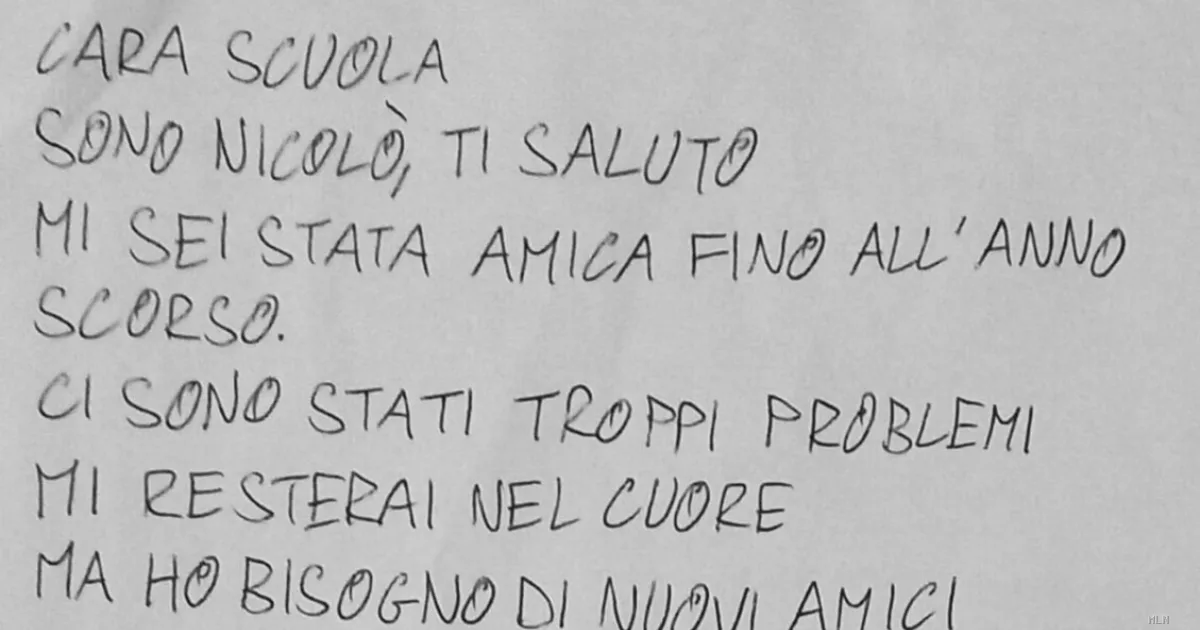 CARA SCUOLA
SONO NICOLÒ, TI SALUTO
MI SEI STATA AMICA FINO ALL'ANNO
SCORSO.
CI SONO STATI TROPPI PROBLEMI
MI RESTERAI NEL CUORE
MA HO BISOGNO DI NUOVI AMICI
MLN